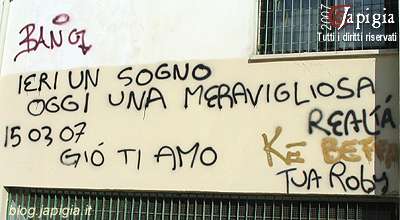 2007 Japigia
Tutti i diritti riservati
IERI UN SOGNO
OGGI UNA MERAVIGLIOSA
REALTÁ
15 03 07
GIÓ TI AMO
KE BEFFA
TUA Roby
blog.japigia.it